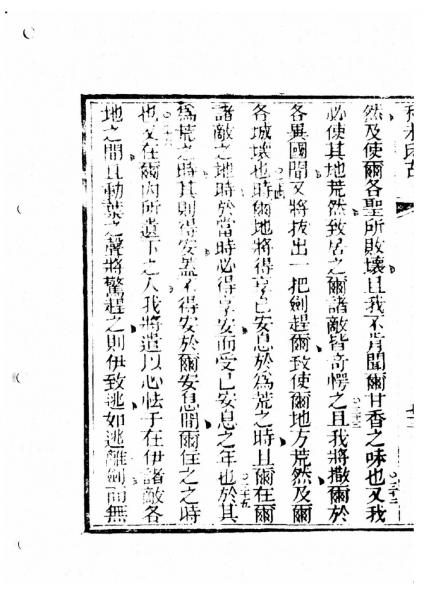 然及使爾各聖所敗壞且我不肯聞爾甘香之味也又我三十二
必使其地荒然致居之爾諸敵皆奇愕之且我將撒爾於三十三
各異國間又將拔出一把劍趕爾致使爾地方荒然及爾
各城壞也時爾地將得享己安息於為荒之時且爾在爾三十四
諸敵之地時於當時必得享安而受己安息之年也於其三十五
為荒之時其則得安蓋不得安於爾安息間爾住之之時
也又在爾內所遺下之人我將遣以心怯于在伊諸敵各三十六
地之間且動葉之聲將驚趕之則伊致逃如逃離劍而無